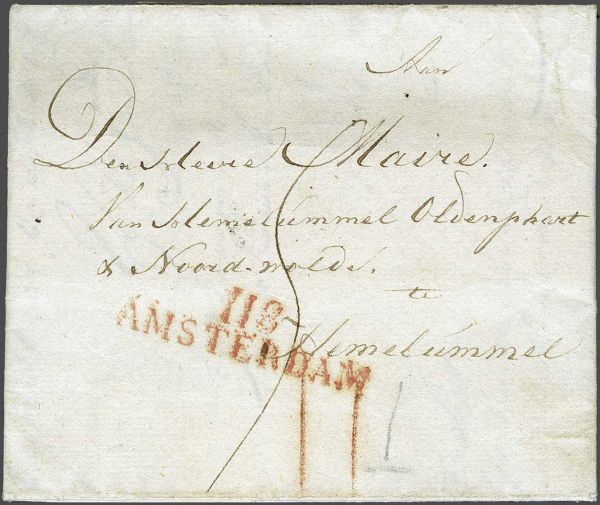 Aan
Den Heere Maire.
Van Hemelummel Oldenphart
& Noord-wolde.
te
Hemelummel
118
AMSTERDAM